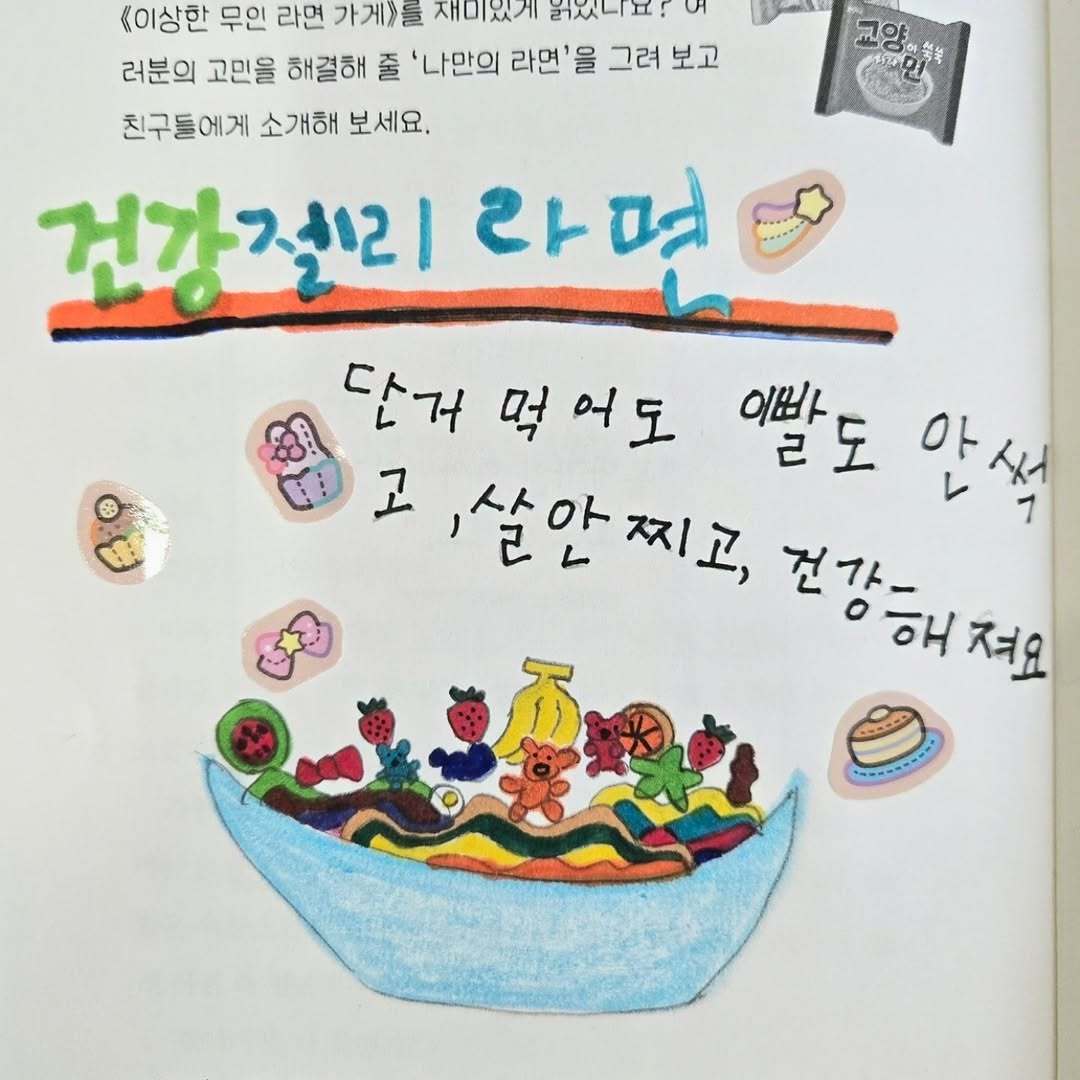 《이상한 무인 라면 가게》를 재미있게 읽었나요? 여
러분의 고민을 해결해 줄 ‘나만의 라면’을 그려 보고
친구들에게 소개해 보세요.
고양이 쑥쑥
라면
건강젤리 라면
단거 먹어도 이빨도 안 썩
고, 살안찌고, 건강
해져요